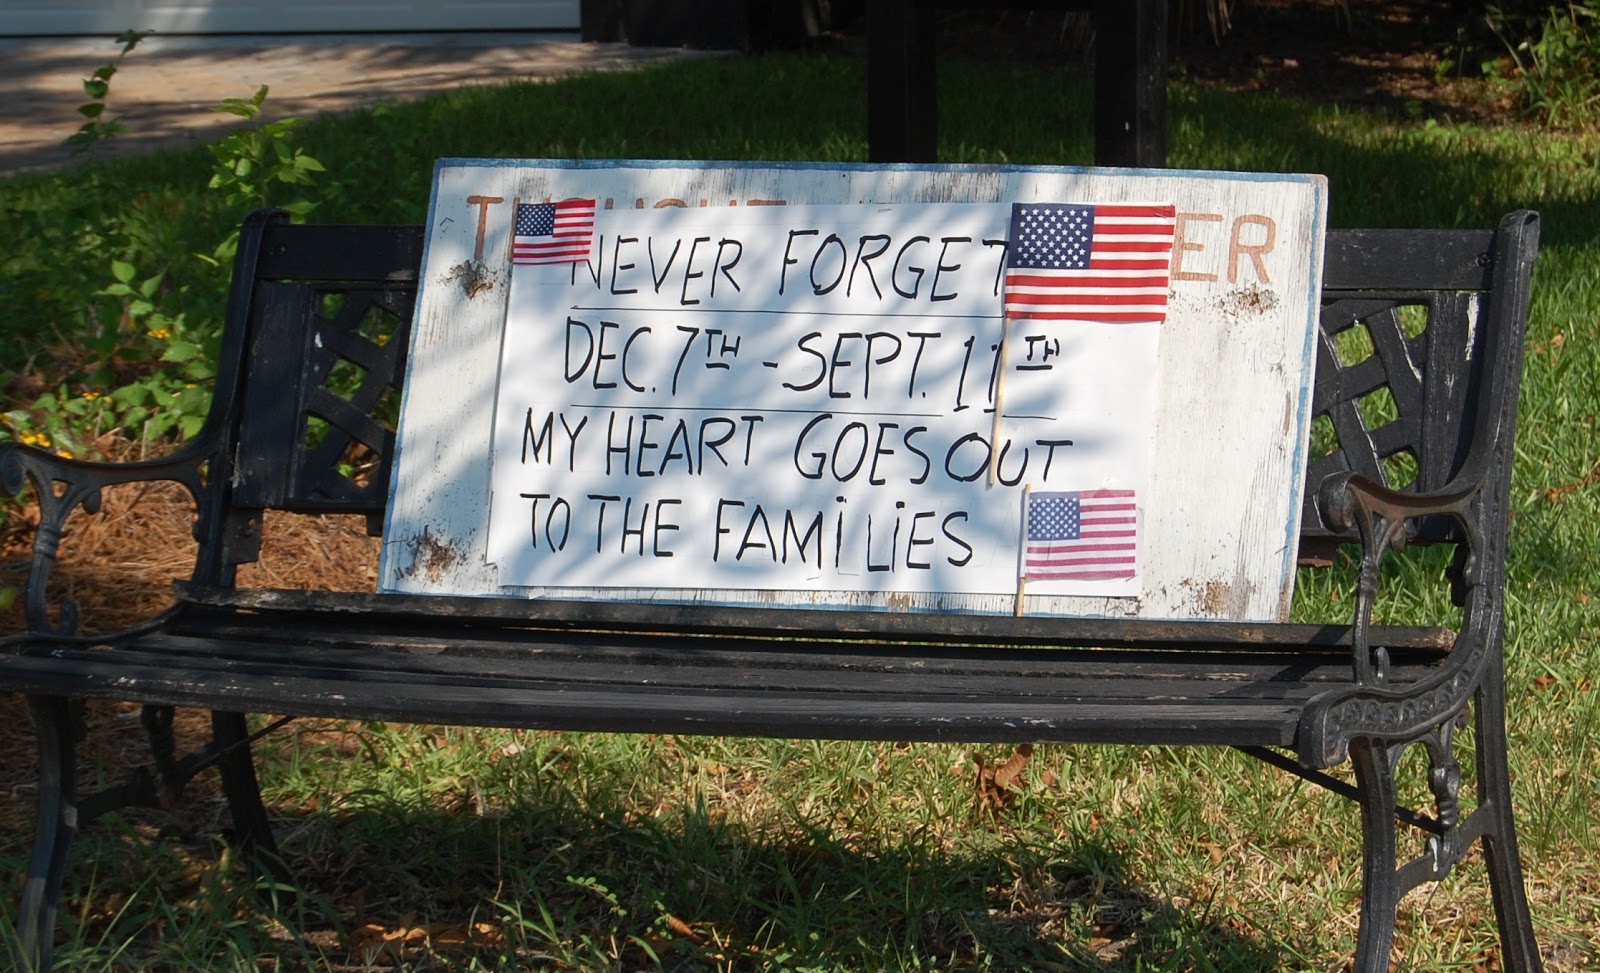 NEVER FORGET
DEC. 7TH - SEPT. 11TH
MY HEART GOES OUT
TO THE FAMiLiES